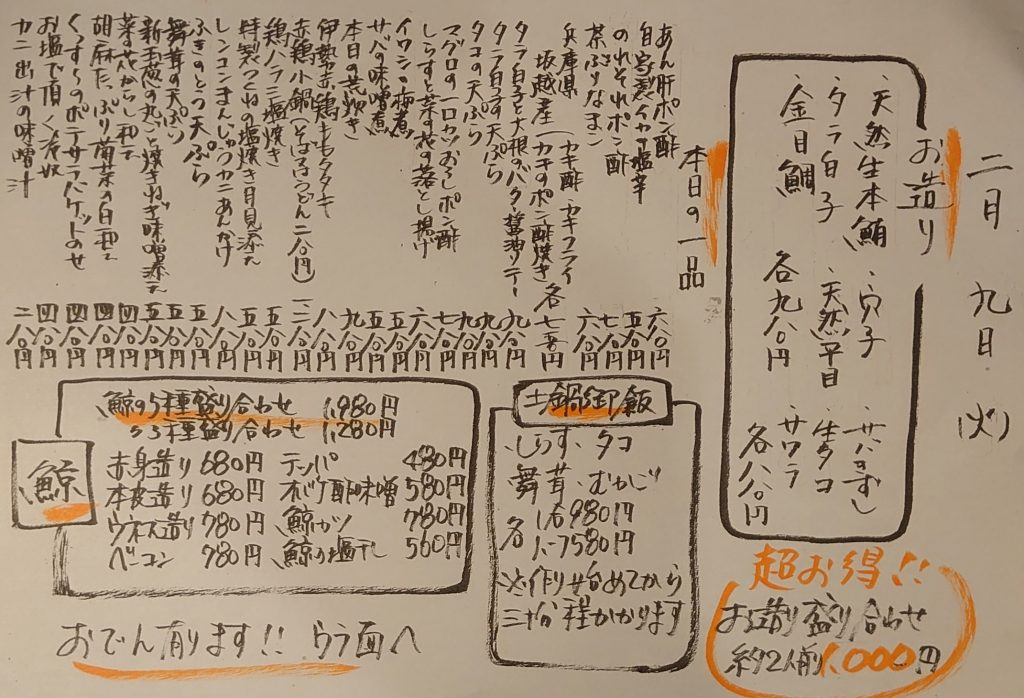 二月九日(火)
お造り
・天然生本鮪 ・穴子 ・サバきずし
・タラ白子 ・天然平目 ・生タコ
・金目鯛 各九八〇円 ・サワラ 各八八〇円
超お得!!
お造り盛り合わせ
約2人前1,000円
本日の一品
あん肝ポン酢 六八〇円
自家製イカの塩辛 五八〇円
のれそれポン酢 七八〇円
茶ぶりなまこ 六八〇円
兵庫県
坂越産(カキ酢・カキフライ
カキのポン酢焼き 各七八〇円
タラ白子と大根のバター醤油ソテー 九八〇円
タラ白子の天ぷら 九八〇円
タコの天ぷら
マグロの一口カツおろしポン酢
しらすと菜の花の落とし揚げ
イワシの梅煮
サバの味噌煮
本日の荒炊き
伊勢赤鶏ももタタキ
赤鶏小鍋(そばorうどん二八〇円)
鶏ハラミ塩焼き
特製つくねの塩焼き月見添え
レンコンまんじゅうカニあんかけ
ふきのとう天ぷら
舞茸の天ぷら
新玉葱の丸ごと焼きねぎ味噌添え
菜の花からし和え
胡麻たっぷり菊菜の白和え
くんすぃ〜のポテサラバケットのせ
お塩で頂く冷奴
カニ出汁の味噌汁 二八〇円
土鍋御飯
・しらす・タコ
・舞茸・むかご
各 1合980円
ハーフ580円
※作り始めてから
三十分程かかります
鯨
鯨の5種盛り合わせ 1,980円
〃3種盛り合わせ 1,280円
赤身造り 680円 テッパ 480円
本皮造り 680円 オバケ酢味噌 580円
ウネス造り 780円 鯨カツ 780円
ベーコン 780円 鯨の塩干し 560円
おでん有ります!! ウラ面へ